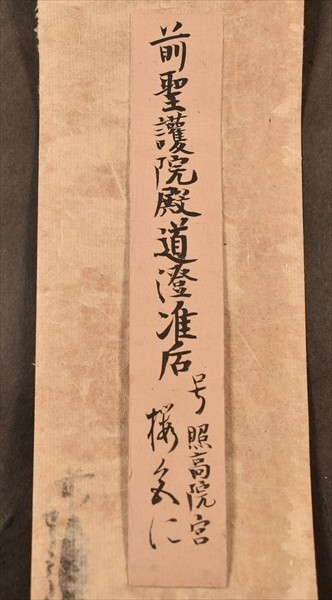 前聖護院殿道澄准后
号照高院宮
桜色に